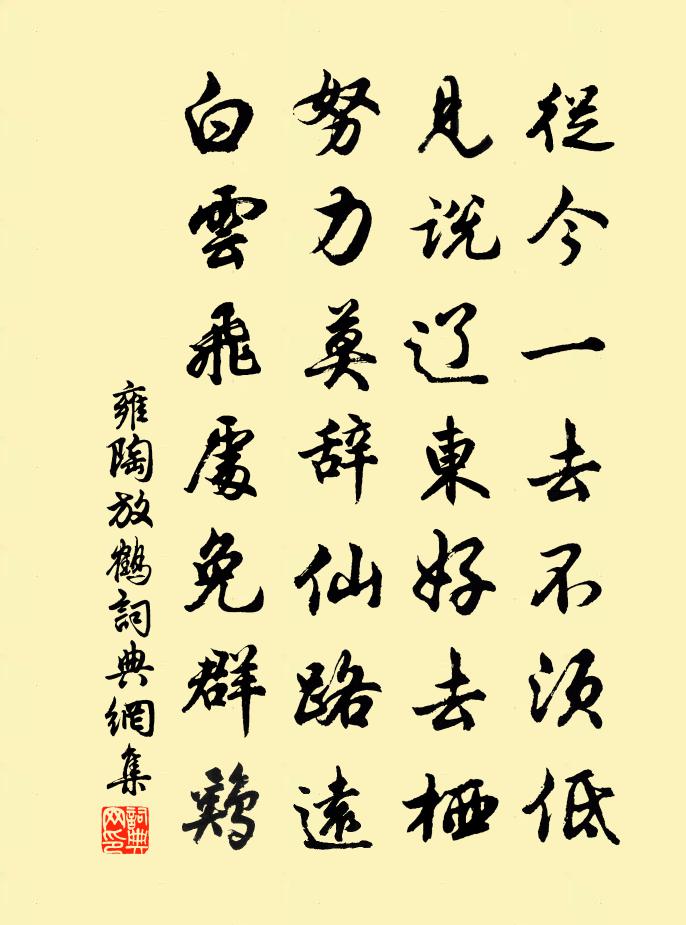 從今一去不須低
見説辽東好去栖
努力莫辞仙路遠
白雲飛處免群鷄
雍陶放鶴詞典網集
詞典
网印